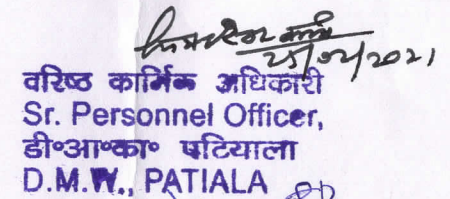 25/02/2021
वरिष्ठ कार्मिक अधिकारी
Sr. Personnel Officer,
डी॰आ॰का॰ पटियाला
D.M.W., PATIALA